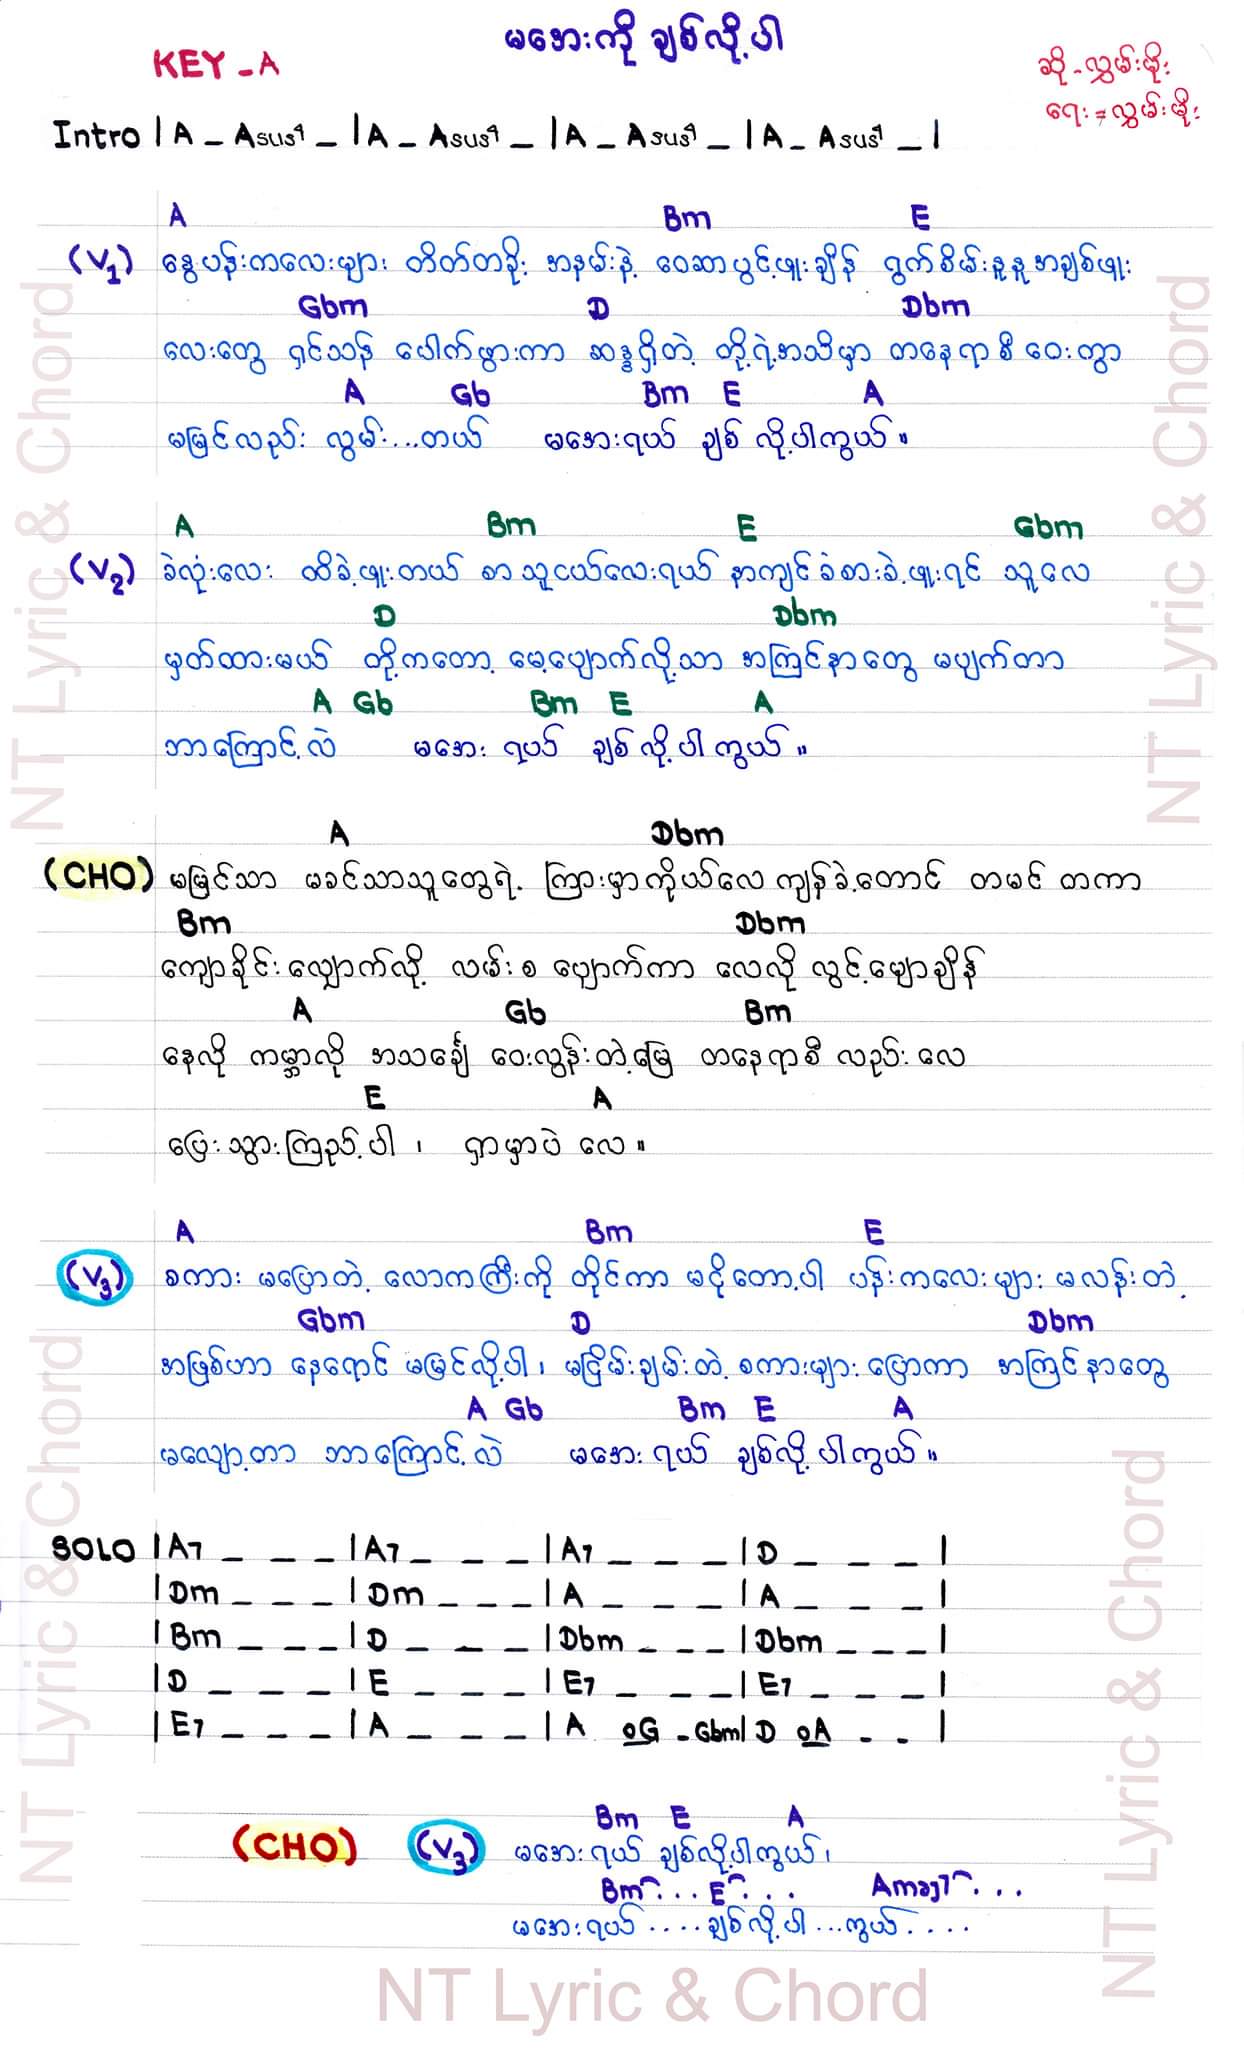 မအေးကို ချစ်လို့ပါ
KEY - A
ဆို - လွှမ်းမိုး
ရေး = လွှမ်းမိုး
Intro | A - Asus4 - | A - Asus4 - | A - Asus4 - | A - Asus4 - |
A Bm E
(V1) နွေပန်းကလေးများ တိတ်တခိုး အနမ်းနဲ့ ဝေဆာပွင့်ဖူးချိန် ရွက်စိမ်းနုနု အချစ်ဖူး
Gbm D Dbm
လေးတွေ ရှင်သန် ပေါက်ဖွားကာ ဆန္ဒရှိတဲ့ တို့ရဲ့အသိမှာ တနေရာစီ ဝေးကွာ
A Gb Bm E A
မမြင်လည်း လွမ်း...တယ် မအေးရယ် ချစ် လို့ပါကွယ်။
A Bm E Gbm
(V2) ခဲလုံးလေး ထိခဲ့ဖူးတယ် စာသူငယ်လေးရယ် နာကျင်ခံစားခဲ့ဖူးရင် သူလေ
D Dbm
မှတ်ထားမယ် တို့ကတော့ မေ့ပျောက်လို့သာ အကြင်နာတွေ မပျက်တာ
A Gb Bm E A
ဘာကြောင့်လဲ မအေး ရယ် ချစ်လို့ ပါ ကွယ်။
A Dbm
(CHO) မမြင်သာ မခင်သာသူတွေရဲ့ ကြားမှာကိုယ်လေ ကျန်ခဲ့တောင် တမင် တကာ
Bm Dbm
ကျောခိုင်းလျှောက်လို့ လမ်းစ ပျောက်ကာ လေလို လွင့်မျောချိန်
A Gb Bm
နေလို ကမ္ဘာလို အသင်္ချေ ဝေးလွန်းတဲ့မြေ တနေရာစီ လည်းလေ
E A
ပြေးသွားကြည့်ပါ ၊ ရှာမှာပဲ လေ။
A Bm E
(V3) စကား မပြောတဲ့ လောကကြီးကို တိုင်ကာ မငိုတော့ပါ ပန်းကလေးများ မလန်းတဲ့
Gbm D Dbm
အဖြစ်ဟာ နေရောင် မမြင်လို့ပါ ၊ မငြိမ်းချမ်းတဲ့ စကားများ ပြောကာ အကြင်နာတွေ
A Gb Bm E A
မလျော့တာ ဘာကြောင့်လဲ မအေး ရယ် ချစ်လို့ ပါကွယ်။
SOLO | A7 _ _ _ | A7 _ _ _ | A7 _ _ _ | D _ _ _ |
| Dm _ _ _ | Dm _ _ _ | A _ _ _ | A _ _ _ |
| Bm _ _ _ | D _ _ _ | Dbm _ _ _ | Dbm _ _ _ |
| D _ _ _ | E _ _ _ | E7 _ _ _ | E7 _ _ _ |
| E7 _ _ _ | A _ _ _ | A oG - Gbm | D oA - - |
Bm E A
(CHO) (V3) မအေးရယ် ချစ်လို့ပါကွယ်၊
Bm... E... Amaj7...
မအေးရယ် .... ချစ်လို့ပါ ... ကွယ် ....
NT Lyric & Chord
NT Lyric & Chord
NT Lyric & Chord
NT Lyric & Chord
NT Lyric & Chord